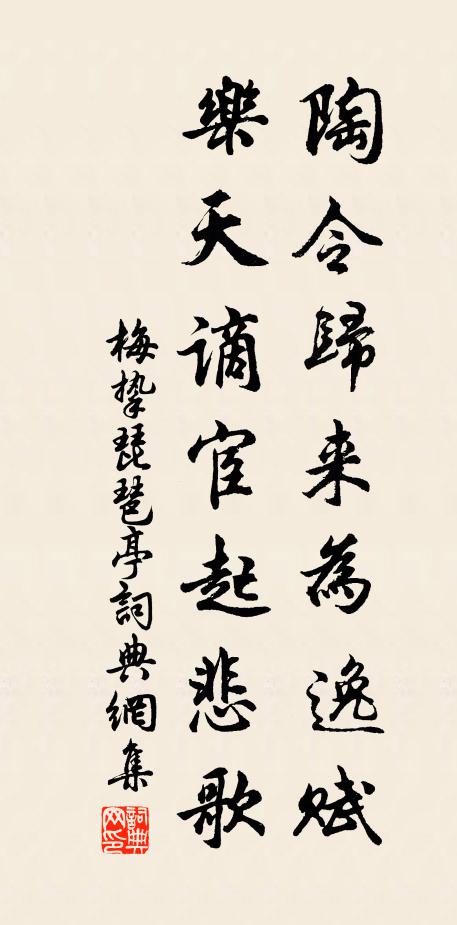 陶令歸来為逸賦
樂天謫宦起悲歌
梅挚琵琶亭詞典網集
詞典
网印